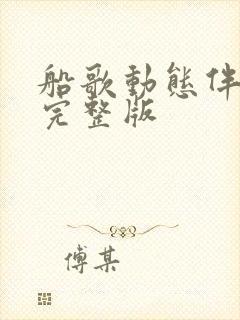 船歌動態伴
完整版
傅某